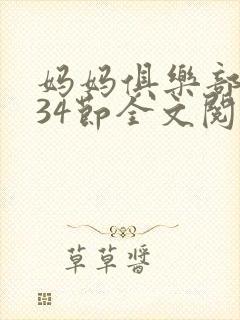 妈妈俱樂部
34節全文閱
草草醬